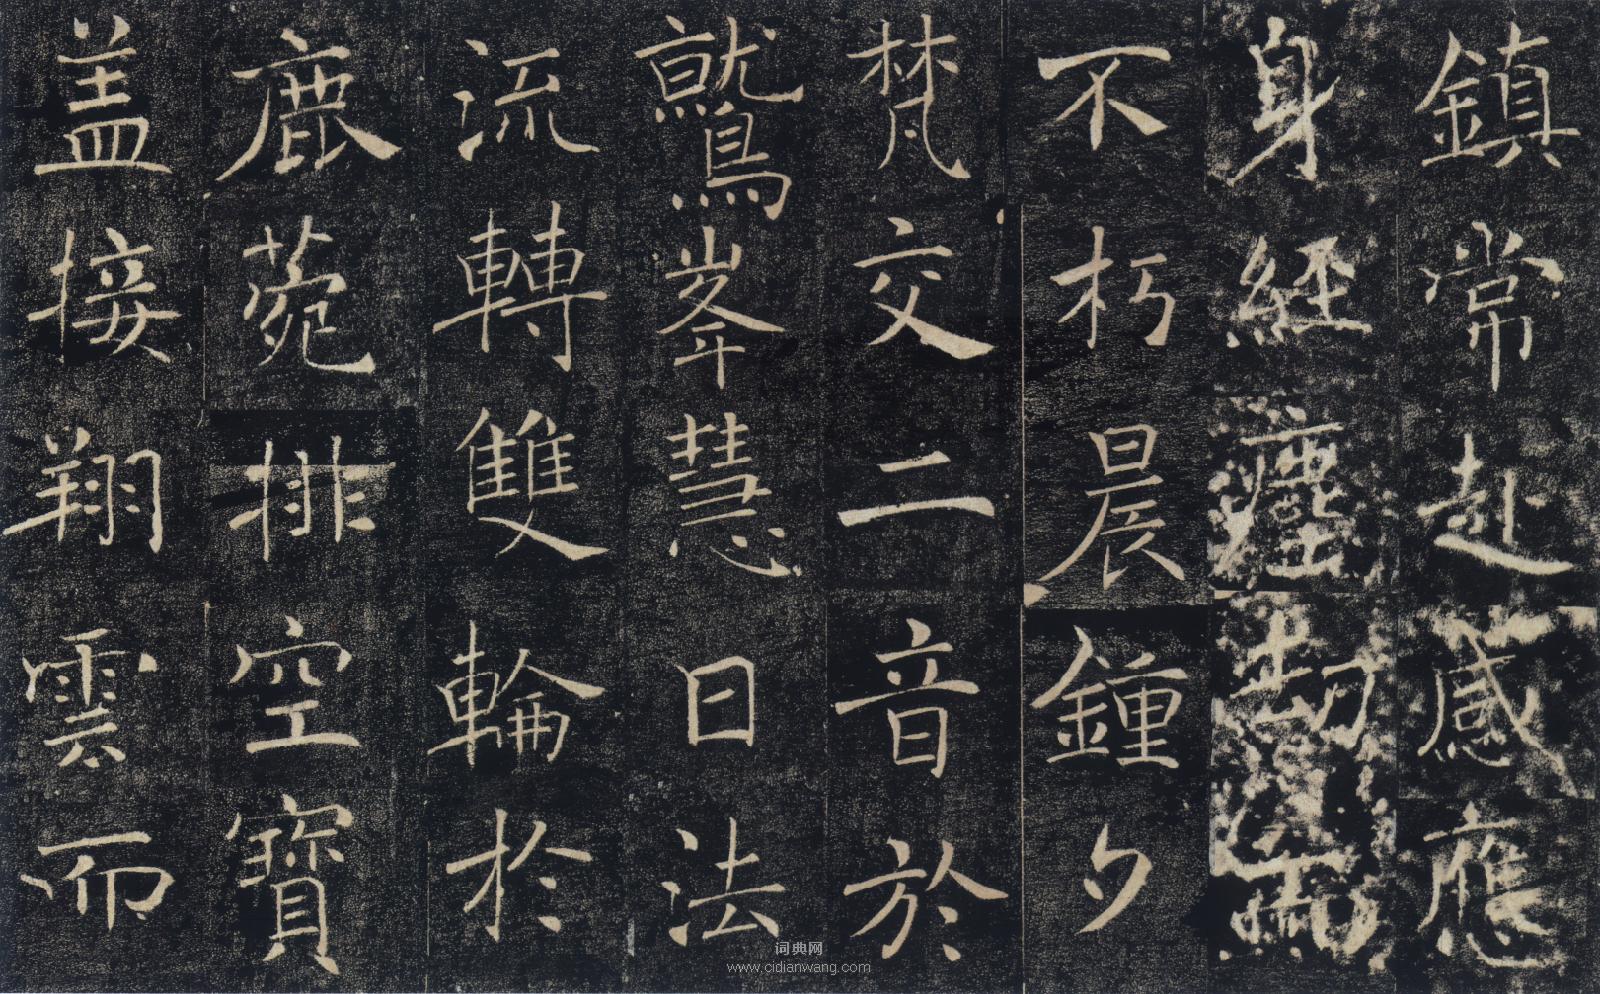 鎮常赴感應
身經塵劫而
不朽晨鍾夕
梵交二音於
鷲峯慧日法
流轉雙輪於
鹿菀排空寶
盖接翔雲而
词典网
www.cidianwang.com